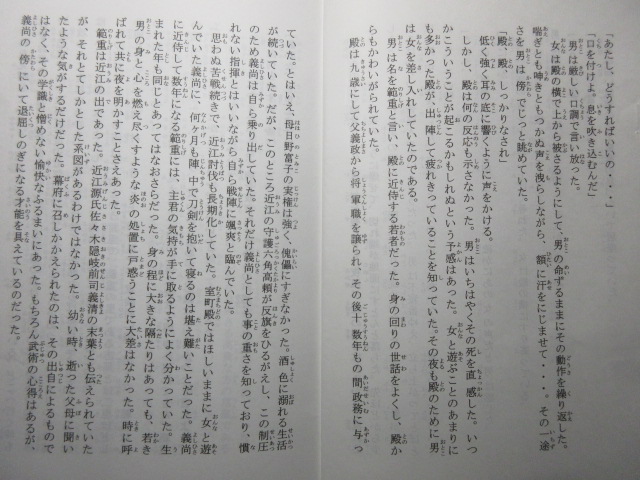 「あたし、どうすればいいの・・・」
「口を付けよ。息を吹き込むんだ」
男は厳しい口調で言い放った。
女は殿の横で上から被さるようにして、男の命ずるままにその動作を繰り返した。
喘ぎとも呻きともつかぬ声を洩らしながら、額に汗をにじませて・・・。その一途
さを男は、傍でじっと眺めていた。
「殿、殿、しっかりなされ」
低く強く耳の底に響くように声をかける。
しかし、殿は何の反応も示さなかった。男はいちはやくその死を直感した。いつ
かこういうことが起こるかもしれぬという予感はあった。女と遊ぶことのあまりに
も多かった殿が、出陣して疲れきっていることを知っていた。その夜も殿のために男
は女を差し入れしていたのである。
男は名を範重と言い、殿に近侍する若者だった。身の回りの世話をよくし、殿か
らもかわいがられていた。
殿は九歳にして父義政から将軍職を譲られ、その後十数年もの間政務に与っ
ていた。とはいえ、母日野富子の実権は強く、傀儡にすぎなかった。酒色に溺れる生活
が続いていた。だが、このところ近江の守護六角高頼が反旗をひるがえし、この制圧
のため義尚は自ら乗り出していた。それだけ義尚としても事の重さを知っており、慣
れない指揮とはいいながら自ら戦陣に颯爽と臨んでいた。
思わぬ苦戦続きで、近江討ちも長期化していた。室町殿ではほしいままに女と遊
んでいた義尚に、何ヶ月も陣中で刀剣を抱いて寝るのは堪え難いことだった。義尚
に近侍して数年になる範重には、主君の気持が手に取るようによく分かっていた。生
まれた年も同じとあってはなおさらだった。身の程に大きな隔たりはあっても、若き
男の身と心を燃え尽くすような炎の処置に戸惑うことに大差はなかった。時に呼
ばれて共に夜を明かすことさえあった。
範重は近江の出であった。近江源氏佐々木隠岐前司義清の末葉とも伝えられていた
が、それとてしかとした系図があるわけではなかった。幼い時、逝った父母に聞い
たような気がするだけだった。幕府に召しかかえられたのは、その出自によるもので
はなく、その学識と憎めない愉快なふるまいにあった。もちろん武術の心得はあるが、
義尚の傍にいて退屈しのぎになる才能を具えているのだった。